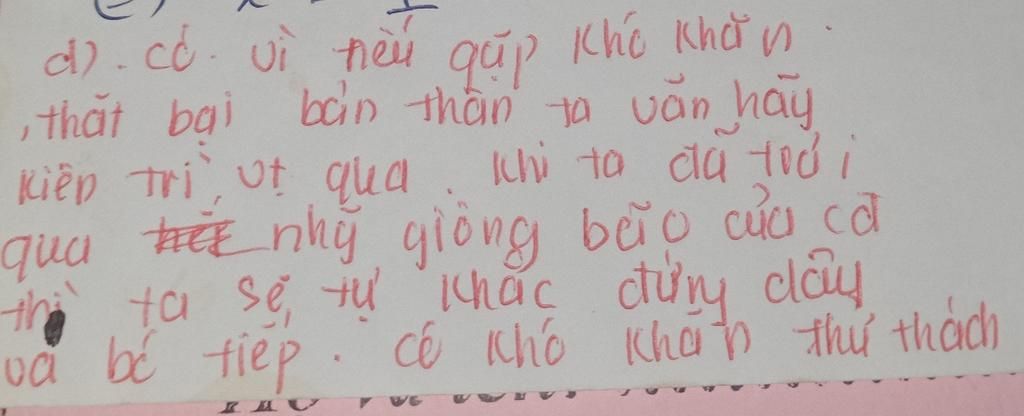 d). có. vì nếu gặp khó khăn.
, thất bại bản thân ta vẫn hãy
kiên trì, vt qua. khi ta đã trải
qua nhg giông bão của cđ
thì ta sẽ tự khắc đứng dậy
và bc tiếp. có khó khăn thử thách